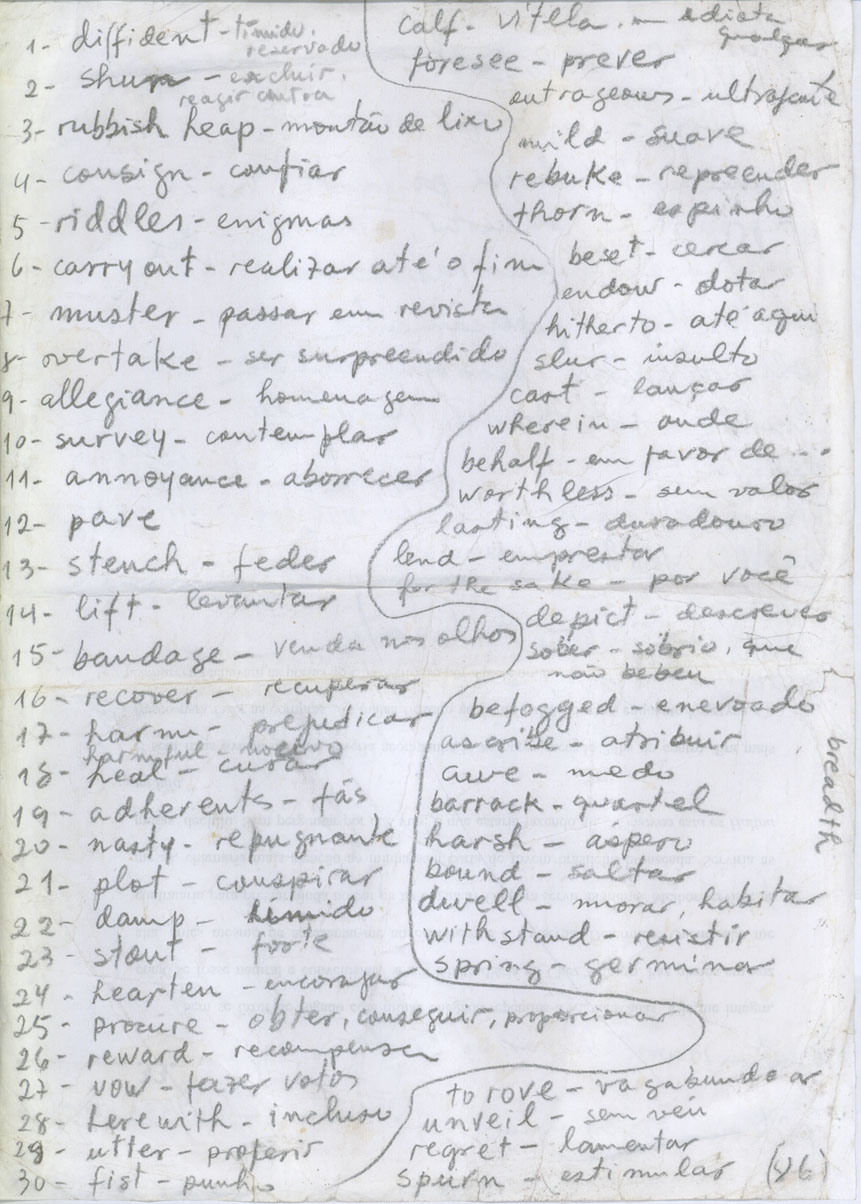 1- diffident - tímido,
reservado
2- shun - excluir,
reagir contra
3- rubbish heap - montão de lixo
4- consign - confiar
5- riddles - enigmas
6- carry out - realizar até o fim
7- muster - passar em revista
8- overtake - ser surpreendido
9- allegiance - homenagem
10- survey - contemplar
11- annoyance - aborrecer
12- pave
13- stench - feder
14- lift - levantar
15- bandage - venda nos olhos
16- recover - recuperar
17- harm - prejudicar
harmful - nocivo
18- heal - curar
19- adherents - fãs
20- nasty - repugnante
21- plot - conspirar
22- damp - húmido
23- stout - forte
24- hearten - encorajar
25- procure - obter, conseguir, proporcionar
26- reward - recompensa
27- vow - fazer votos
28- herewith - incluso
29- utter - proferir
30- fist - punho
calf - vitela,
foresee - prever
outrageous - ultrajante
mild - suave
rebuke - repreender
thorn - espinho
beset - cercar
endow - dotar
hitherto - até aqui
slur - insulto
cast - lançar
wherein - onde
behalf - em favor de ...
worthless - sem valor
lasting - duradouro
lend - emprestar
for the sake - por você
depict - descrever
sober - sóbrio, que
não bebeu
befogged - enevoado
ascribe - atribuir
awe - medo
barrack - quartel
harsh - áspero
bound - saltar
dwell - morar, habitar
withstand - resistir
spring - germinar
breadth
to rove - vagabundear
unveil - sem véu
regret - lamentar
spurn - estimular (86)